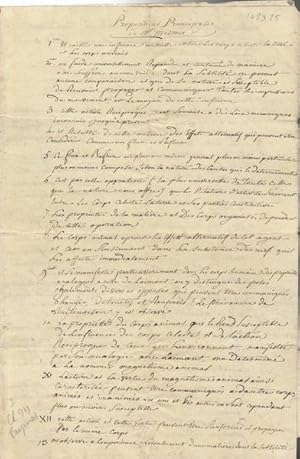 Propositions Principales
de Mr Mesmer
1 Il existe une influence mutuelle entre les corps celestes la terre
et les corps animés
un fluide universellement Repandu et Continué de maniere
a ne souffrir aucun vuide, dont la Subtilité ne permet
aucune comparaison, et qui de sa nature est Susceptible
de Recevoir propager et Communiquer toutes les impressions
du mouvement est le moyen de cette influence
3 cette action Reciproque est Soumise a des Loix mecaniques
inconnues jusqu'a present
il Resulte de cette action des Effets alternatifs qui peuvent etre
consideres Comme un flux et Reflux
5 Ce flux et Reflux est plus ou moins general plus ou moins particulier
plus ou moins Composé, selon la nature des causes qui le determinent
6 C'est par cette operation (la plus universelle de toutes celles
que la nature nous offre) que les Relations d'activité s'exercent
entre les Corps Celestes la terre et Ses parties constitutives
7 Les proprietés de la matiere et du Corps organisé dependent
de cette operation
8 Le Corps animal eprouve les Effets alternatifs de cet agent
et c'est en s'insinuant dans la Substance des nerfs qu'il
les affecte immediatement
il se manifeste particulierement dans les corps humains des proprietés
analogues a celles de l'aimant on y distingue des poles
egalement divers et opposés qui peuvent etre communiqués
changés detruits et Renforcés le phenomene de
l'inclinaison y est observé
10 La proprieté du corps animal qui le Rend Susceptible
de l'influence des corps Celestes et de l'action
Reciproque de Ceux qui l'environnent manifestée
par son analogie avec l'aimant m'a Determiné
a la nommer magnetisme animal
XI L'action et la Vertu du magnetisme animal ainsi
Caracterisées peuvent etre communiquées a d'autres corps
animés et inanimés les uns et les autres en sont cependant
plus ou moins Susceptibles
XII cette action et cette Vertu peuvent etre Renforcées et propagées
par les meme Corps
13 on observe a l'experience l'ecoulement d'une matiere dont la Subtilité